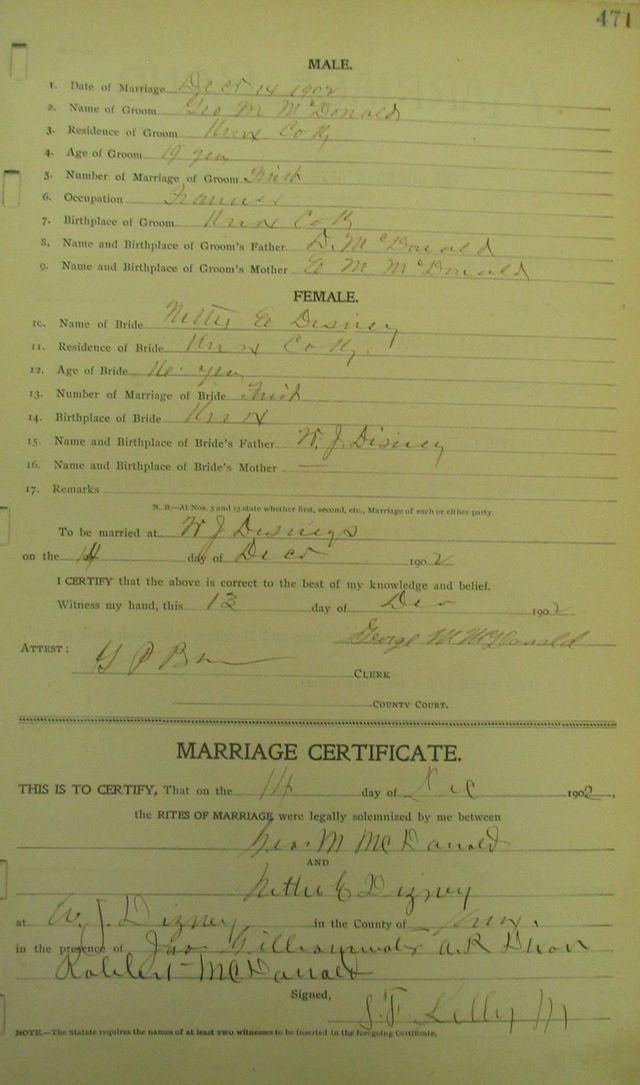 471
MALE.
1. Date of Marriage Dec 14 1902
2. Name of Groom Geo M McDonald
3. Residence of Groom Knox Co Ky
4. Age of Groom 19 yea
5. Number of Marriage of Groom First
6. Occupation Farmer
7. Birthplace of Groom Knox Co Ky
8. Name and Birthplace of Groom's Father D. McDonald
9. Name and Birthplace of Groom's Mother E M McDonald
FEMALE.
10. Name of Bride Nettie E Disney
11. Residence of Bride Knox Co Ky.
12. Age of Bride 16 yea
13. Number of Marriage of Bride First
14. Birthplace of Bride Knox
15. Name and Birthplace of Bride's Father W. J. Disney
16. Name and Birthplace of Bride's Mother —
17. Remarks
N. B.—At Nos. 5 and 13 state whether first, second, etc., Marriage of each or either party.
To be married at W J Disneys
on the 14 day of Dec 1902
I CERTIFY that the above is correct to the best of my knowledge and belief.
Witness my hand, this 13 day of Dec 1902
George M McDonald
ATTEST: CLERK
COUNTY COURT.
MARRIAGE CERTIFICATE.
THIS IS TO CERTIFY, That on the 14 day of Dec 1902.
the RITES OF MARRIAGE were legally solemnized by me between
Geo M McDonald
AND
Nettie E Dizney
at W. J. Dizney in the County of Knox.
in the presence of Jno A R Dixon
Robbert McDonald
Signed, Kelly
NOTE.—The Statute requires the names of at least two witnesses to be inserted in the foregoing Certificate.